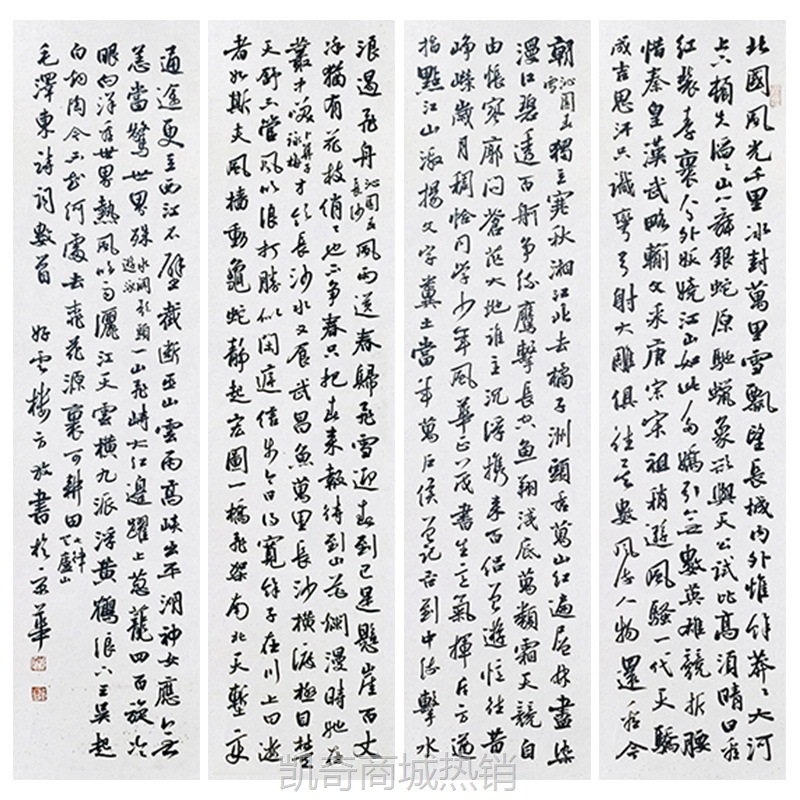 北國風光千里冰封萬里雪飄望長城內外惟餘莽〻大河
上下頓失滔〻山舞銀蛇原馳蠟象欲與天公試比高須晴日看
紅裝素裹分外妖嬈江山如此多嬌引無數英雄競折腰
惜秦皇漢武略輸文采唐宗宋祖稍遜風騷一代天驕
成吉思汗只識彎弓射大雕俱往矣數風流人物還看今
朝沁園春雪獨立寒秋湘江北去橘子洲頭看萬山紅遍層林盡染
漫江碧透百舸爭流鷹擊長空魚翔淺底萬類霜天競自
由悵寥廓問蒼茫大地誰主沉浮攜來百侶曾遊憶往昔
崢嶸歲月稠恰同學少年風華正茂書生意氣揮斥方遒
指點江山激揚文字糞土當年萬戶侯曾記否到中流擊水
浪遏飛舟沁園春長沙風雨送春歸飛雪迎春到已是懸崖百丈
冰猶有花枝俏〻也不爭春只把春來報待到山花爛漫時她在
叢中笑卜算子詠梅才飲長沙水又食武昌魚萬里長沙橫渡極目楚
天舒不管風吹浪打勝似閑庭信步今日得寬餘子在川上曰逝
者如斯夫風檣動龜蛇靜起宏圖一橋飛架南北天塹變
通途更立西江石壁截斷巫山雲雨高峽出平湖神女應無
恙當驚世界殊水調歌頭游泳一山飛峙大江邊躍上蔥蘢四百旋冷
眼向洋看世界熱風吹雨灑江天雲橫九派浮黃鶴浪下三吳起
白煙陶令不知何處去桃花源裏可耕田七律登廬山
毛澤東詩詞數首 好雲樓方放書於京華
凯奇商城热销